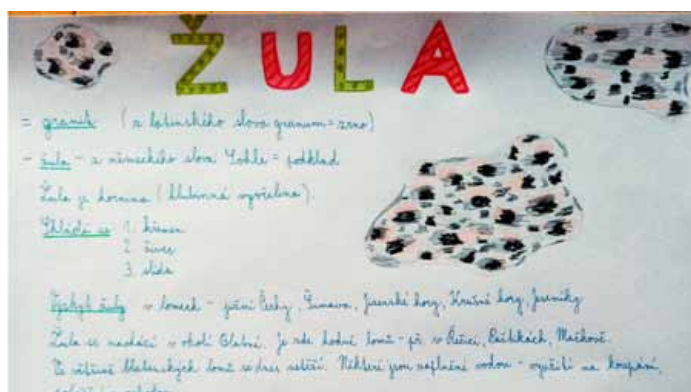 ŽULA
= granit (z latinského slova granum = zrno)
- žula - z německého slova Sohle = podklad
Žula je hornina (hlubinná vyvřelina).
Skládá se 1. křemen
2. živec
3. slída
Výskyt žuly v lomech - jižní Čechy, Šumava, Jizerské hory, Krušné hory, Jeseníky
Žula se nachází v okolí Blatné. Je zde hodně lomů - př. v Řečici, Mačkově.
Ve většině blatenských lomů se dnes netěží. Některé jsou naplněné vodou - využití na koupání,